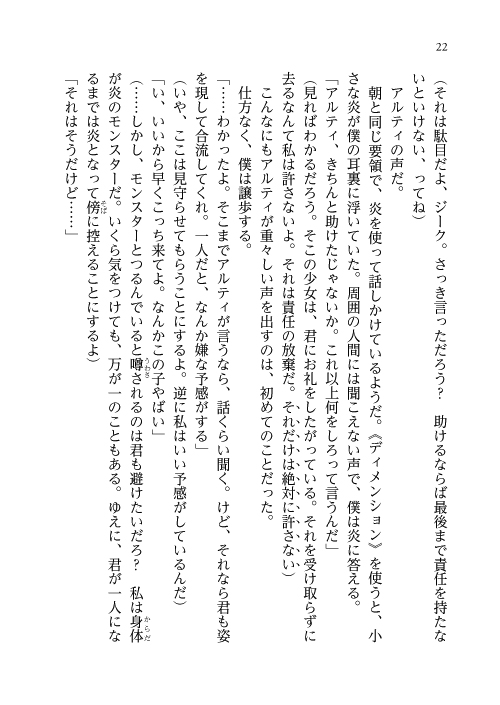 22
（それは駄目だよ、ジーク。さっき言っただろう？　助けるならば最後まで責任を持たな
いといけない、ってね）
アルティの声だ。
朝と同じ要領で、炎を使って話しかけているようだ。《ディメンション》を使うと、小
さな炎が僕の耳裏に浮いていた。周囲の人間には聞こえない声で、僕は炎に答える。
「アルティ、きちんと助けたじゃないか。これ以上何をしろって言うんだ」
（見ればわかるだろう。そこの少女は、君にお礼をしたがっている。それを受け取らずに
去るなんて私は許さないよ。それは責任の放棄だ。それだけは絶対に許さない）
こんなにもアルティが重々しい声を出すのは、初めてのことだった。
仕方なく、僕は譲歩する。
「……わかったよ。そこまでアルティが言うなら、話くらい聞く。けど、それなら君も姿
を現して合流してくれ。一人だと、なんか嫌な予感がする」
（いや、ここは見守らせてもらうことにするよ。逆に私はいい予感がしているんだ）
「い、いいから早くこっち来てよ。なんかこの子やばい」
（……しかし、モンスターとつるんでいると噂うわさされるのは君も避けたいだろ？　私は身体からだ
が炎のモンスターだ。いくら気をつけても、万が一のこともある。ゆえに、君が一人にな
るまでは炎となって傍そばに控えることにするよ）
「それはそうだけど……」